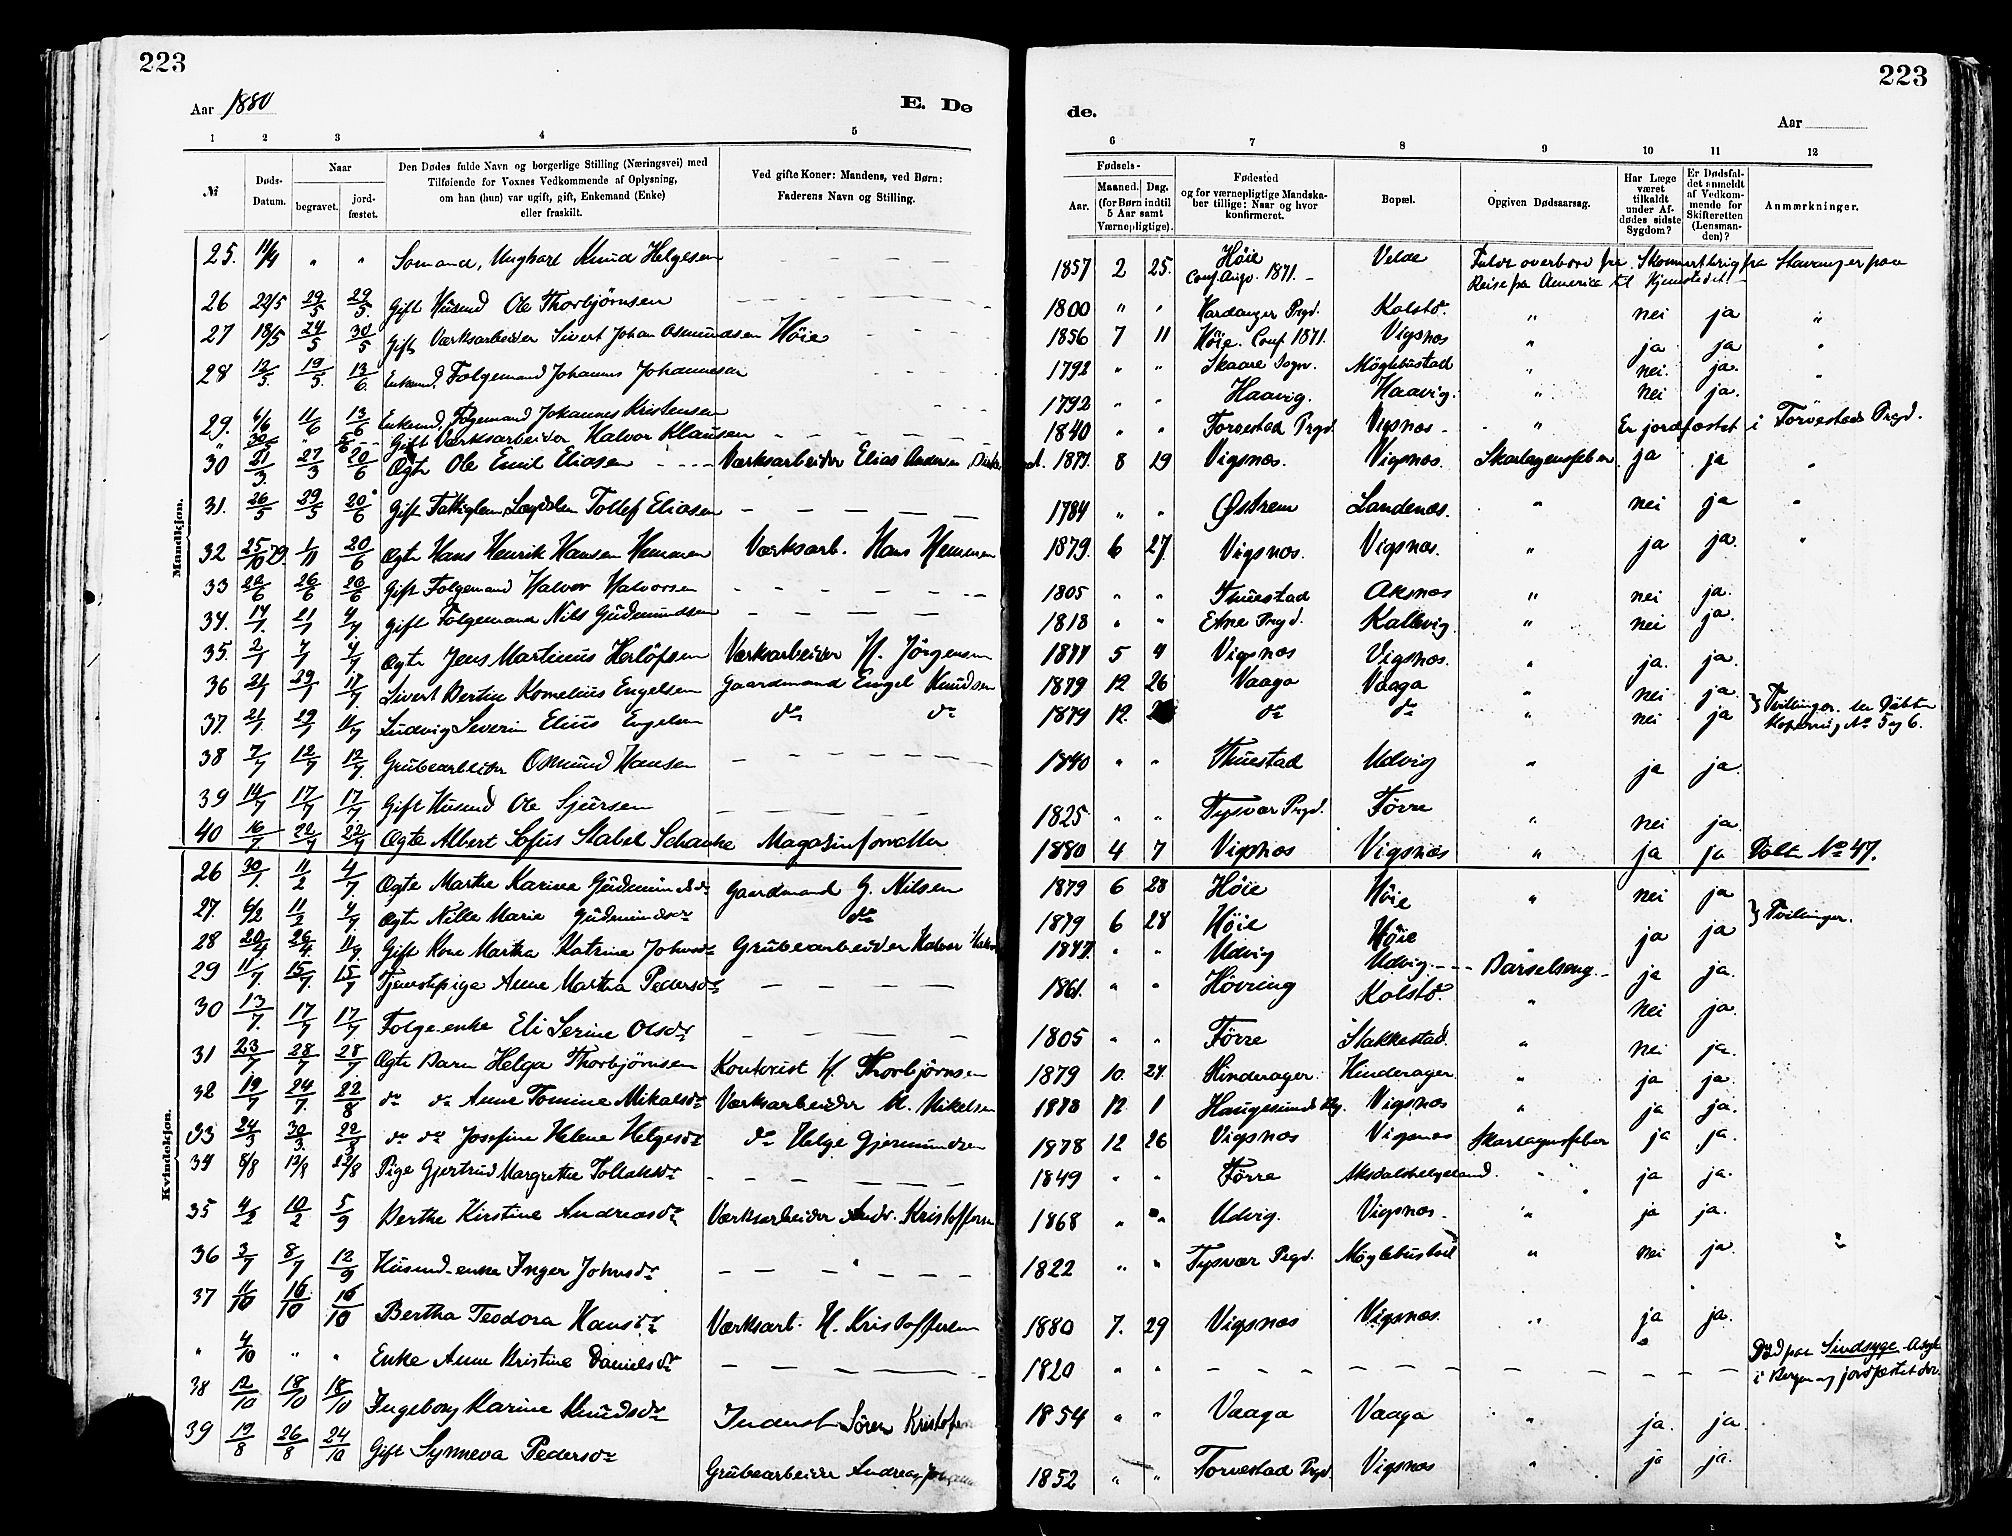 223
Aar 1880
E. De
1 2 3 4 5
№
Døds-Datum.
Naar
begravet.
jord-fæstet.
Den Dødes fulde Navn og borgerlige Stilling (Næringsvei) med
Tilføiende for Voxnes Vedkommende af Oplysning,
om han (hun) var ugift, gift, Enkemand (Enke)
eller fraskilt.
Ved gifte Koner: Mandens, ved Børn:
Faderens Navn og Stilling.
Mandkjøn.
25. 11/4 " " Sømand, Ungkarl Knud Helgesen
26 22/5 29/5 29/5 Gift Husmd Ole Thorbjørnsen
27 18/5 24/5 30/5 Gift Værksarbeider Sivert Johan Osmundsen Høie
28 12/5. 19/5. 13/6 Enkemd. Følgemand Johannes Johannesen
29. 6/6 11/6 13/6 Enkemd. Følgemand Johannes Kristensen
" Gift Værksarbeider Halvor Klausen
30 21/3. 27/3 20/6 Ægte Ole Emil Eliasen Værksarbeider Elias Andersen
31. 26/5 29/5 20/6 Gift Fattiglem, Lægdslem Tollef Eliasen
32 25/10 79. 1/11 20/6 Ægte Hans Henrik Hansen Hemmen Værksarb. Hans Hemmen
33 22/6 26/6 26/6 Gift Følgemand Halvor Halvorsen
34. 17/7. 21/7 4/7 Gift Følgemand Nils Gudmundsen
35. 2/7 4/7 4/7 Ægte Jens Martinus Herlofsen Værksarbeider H. Jörgensen
36 21/1 29/1 11/7 Sivert Bertin Kornelius Engelsen Gaardmand Engel Knudsen
37. 21/1 29/1 11/7 Ludvig Severin Elius Engelsen do do
38 7/7 12/7 12/7 Grubearbeider Osmund Hansen
39 14/7 17/7 17/7 Gift Husmd Ole Sjursen
40 16/7 22/7 22/7 Ægte Albert Sofus Stabel Schanke Magasinforvalter
Kvindekjøn.
26 30/1. 11/2 4/7 Ægte Marthe Karine Gudmundsdr Gaardmand G. Nilsen
27. 6/2 11/2 4/7 Ægte Nille Marie Gudmundsdr do
28 20/4 26/4 11/7. Gift Kone Martha Katrine Johnsdr Grubearbeider Halvor
29 11/7. 15/7. 15/7 Tjenestepige Anne Martha Pedersdr
30 13/7. 17/7 17/7 Følge-enke Eli Serine Olsdr
31 23/7 28/7 28/7 Ægte Barn Helga Thorbjørnsen Kontorist H. Thorbjørnsen
32 19/7 24/7. 22/8 do do Anne Tomine Mikalsdr Værksarbeider M. Mikelsen
33 24/3 30/3. 22/8 do do Josefine Helene Helgesdr do Helge Gjermundsen
34 8/8 13/8 22/8 Pige Gjertrud Margrethe Tollaksdr
35 4/2 10/2 5/9 Berthe Kirstine Andreasdr Værksarbeider Andr. Kristoffersen
36 3/7 8/7 12/9 Husmd-enke Inger Johnsdr
37 11/10 16/10 16/10 Bertha Teodora Hansdr Værksarb. H. Kristoffersen
" 4/10 " " Enke Anne Kristine Danielsdr
38 12/10 18/10 18/10 Ingeborg Karine Knudsdr Inderst Sören
39 19/8 26/8 24/10 Gift Synneva Pedersdr Grubearbeider Andreas
223
de.
Aar
6 7 8 9 10 11 12
Fødsels-
Aar.
Maaned. Dag.
(for Børn indtil
5 Aar samt
Værnepligtige).
Fødested
og for værnepligtige Mandska-
ber tillige: Naar og hvor
konfirmeret.
Bopæl.
Opgiven Dødsaarsag.
Har Læge
været
tilkaldt
under Af-
dødes sidste
Sygdom?
Er Dødsfal-
det anmeldt
af Vedkom-
mende for
Skifteretten
(Lensman-
den)?
Anmærkninger.
1857 2 25. Høie Conf. Augv. 1871. Velde Faldt overbord fra Skonnertbrig fra Stavanger paa
Reise fra America til Hjemstedet
1800 " " Hardanger Prgd. Kolstø. " nei ja "
1856 7 11 Høie. Conf. 1871. Vigsnæs " ja ja "
1792 " " Skaare Sogn. Møglebustad " nei. ja. "
1792 " " Haavig. Haavig. " nei ja.
1840 " " Torvestad Prgd Vigsnæs " Er jordfæstet i Torvestads Prgd.
1877. 8 19 Vigsnæs. Vigsnæs. Skarlagensfeber ja ja "
1784 " " Østrem Landenæs. " nei ja "
1879. 6 27. Vigsnæs. Vigsnæs. " ja ja. "
1805 " " Thuestad Aksnæs " nei ja.
1818 " " Etne Prgd. Kallevig. " nei ja.
1877 5 4 Vigsnæs Vigsnæs. " ja. ja.
1879 12 26 Vaaga Vaaga " nei ja. } Tvillinger. se Döbte
1879 12. do do " nei ja No 5 og 6.
1840 " " Thuestad Udvig " ja ja.
1825 " " Tysvær Prgd. Førre " nei ja.
1880 4 7 Vigsnæs Vigsnæs " ja ja Döbte No 47.
1879 6 28 Høie Høie " nei ja } Tvillinger.
1879 6 28 Høie Høie ja ja
1847. " " Udvig Udvig Barselseng ja ja.
1861. " " Høvring Kolstø. " nei ja.
1805 " " Førre Stakkestad. " nei ja.
1879 10. 27. Hinderager. Hinderager " ja ja.
1878 12 1 Haugesunds Vigsnæs " ja ja.
1878 12 26 Vigsnæs Vigsnæs Skarlagensfeber ja ja.
1849 " " Førre Aksdalshelgeland. " ja ja.
1868 " " Udvig. Vigsnæs. " ja ja.
1822 " " Tysvær Prgd. Møglebustad " nei ja. "
1880 7. 29 Vigsnæs Vigsnæs. " ja ja.
1820 " " Død paa Sindsyge Asyl
i Bergen og jordfæstet der.
1854 " " Vaaga Vaaga " ja. ja.
1852 " " Torvestad Prgd. Vigsnæs " ja ja.